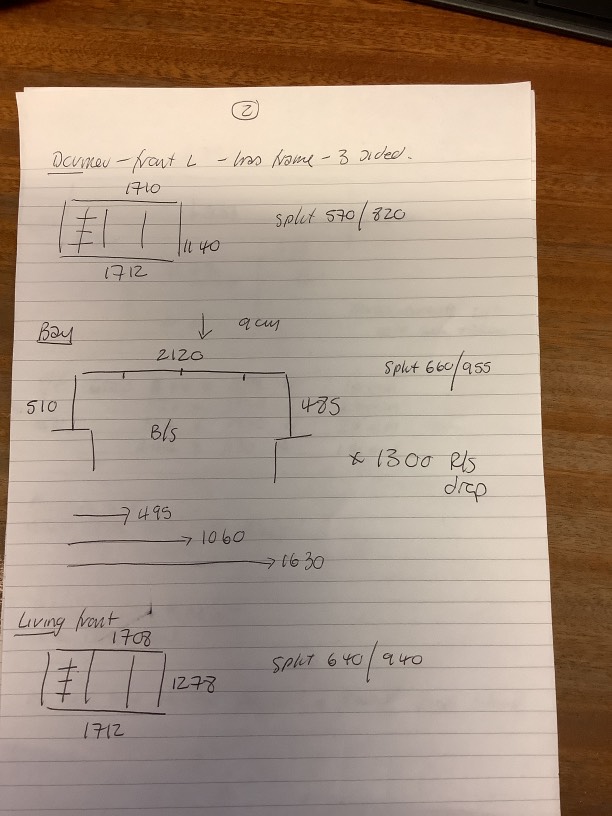 2
Dormer - front L - has frame - 3 sided.
1710
Split 570/820
1140
1712
Bay
9cm
2120
Split 660/955
510
485
B/S
* 1300 R/s
drop
495
1060
1630
Living front
1708
Split 640/940
1278
1712